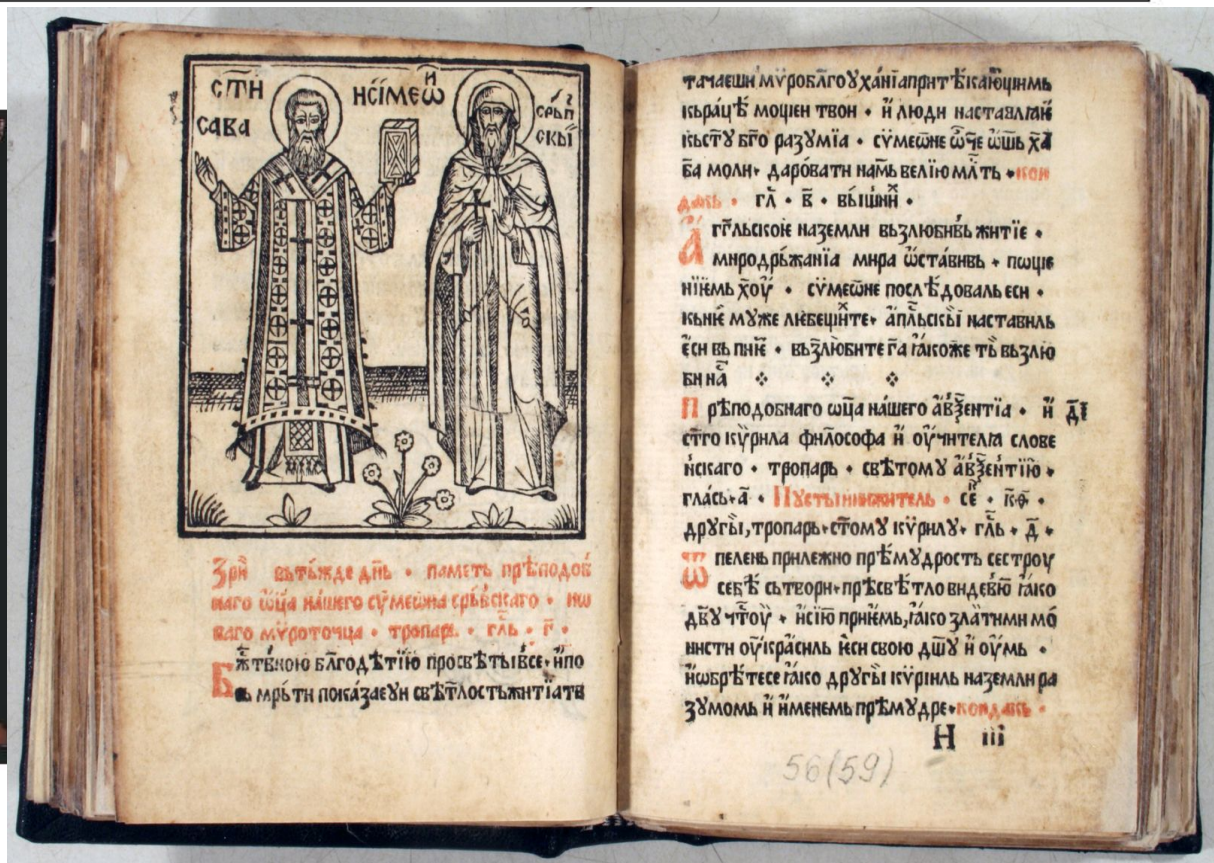 СТ҃Н
САВА
И҆СІ́МЕѠ҆Н
СРЬП
СКЫ
Зрѝ вьтьжде дн҃ь · паметь прѣподоб
наго ѡц҃а на́шего сѵ҆меѡна срьбскаго · но
ваго мѵроточца · тропарь · гл҃ь · г҃ ·
Бж҃твною бл҃годѣтїю просвѣть
показае свѣтлость житїа
мѵробл҃гоуханїа притѣкающіимь
кьрацѣ мощен твои · и҆ люди наставлꙗи
кьсту бг҃о разꙋмїа · сѵмеѡне ѡ҆ч҃е
моли· даро́вати намь велїю мл҃ть · кон
дакь · гл҃ · в҃ · вы́шнїи ·
Аг҃гльскоѥ на земли вьзлюбивь житїе ·
миродрьжанїа мира ѡ҆ста́вивь · поще
нїемь хо҃ѵ · сѵмеѡне послѣдоваль еси ·
кьние мꙋже · а҆пл҃ьскы наставиль
ѐси · вьзлюбите г҃а ꙗкоже ть вьзлю
би на ⁘ ⁘ ⁘
Прѣподобнаго ѡц҃а на́шего а҆ѵѯентїа · и҆ д҃і
ст҃го кѵ́рила философа и҆ оу҆чителꙗ слове
нскаго · тропарь · свѣтомꙋ а҆ѵѯентїю ·
глась · а҃ · Пꙋстыннижитель · се ·
дрꙋгы, тропарь · ст҃омꙋ кѵрилꙋ · гл҃ь · д҃ ·
Ѿ пелень прилежно прѣмꙋдрость сестроу
себѣ сьтвори · прѣсвѣтло видевь ю ꙗко
и҆ сїю прїемь, ꙗко златими мо
нисти оу҆красиль ѥси свою дш҃ꙋ и҆ оу҆мь ·
и҆ѡбрѣтесе ꙗко дрꙋгы кѵ́риль на земли ра
зꙋмомь и҆ и҆менемь прѣмꙋдре · кондакь ·
Н іїі
56(59)